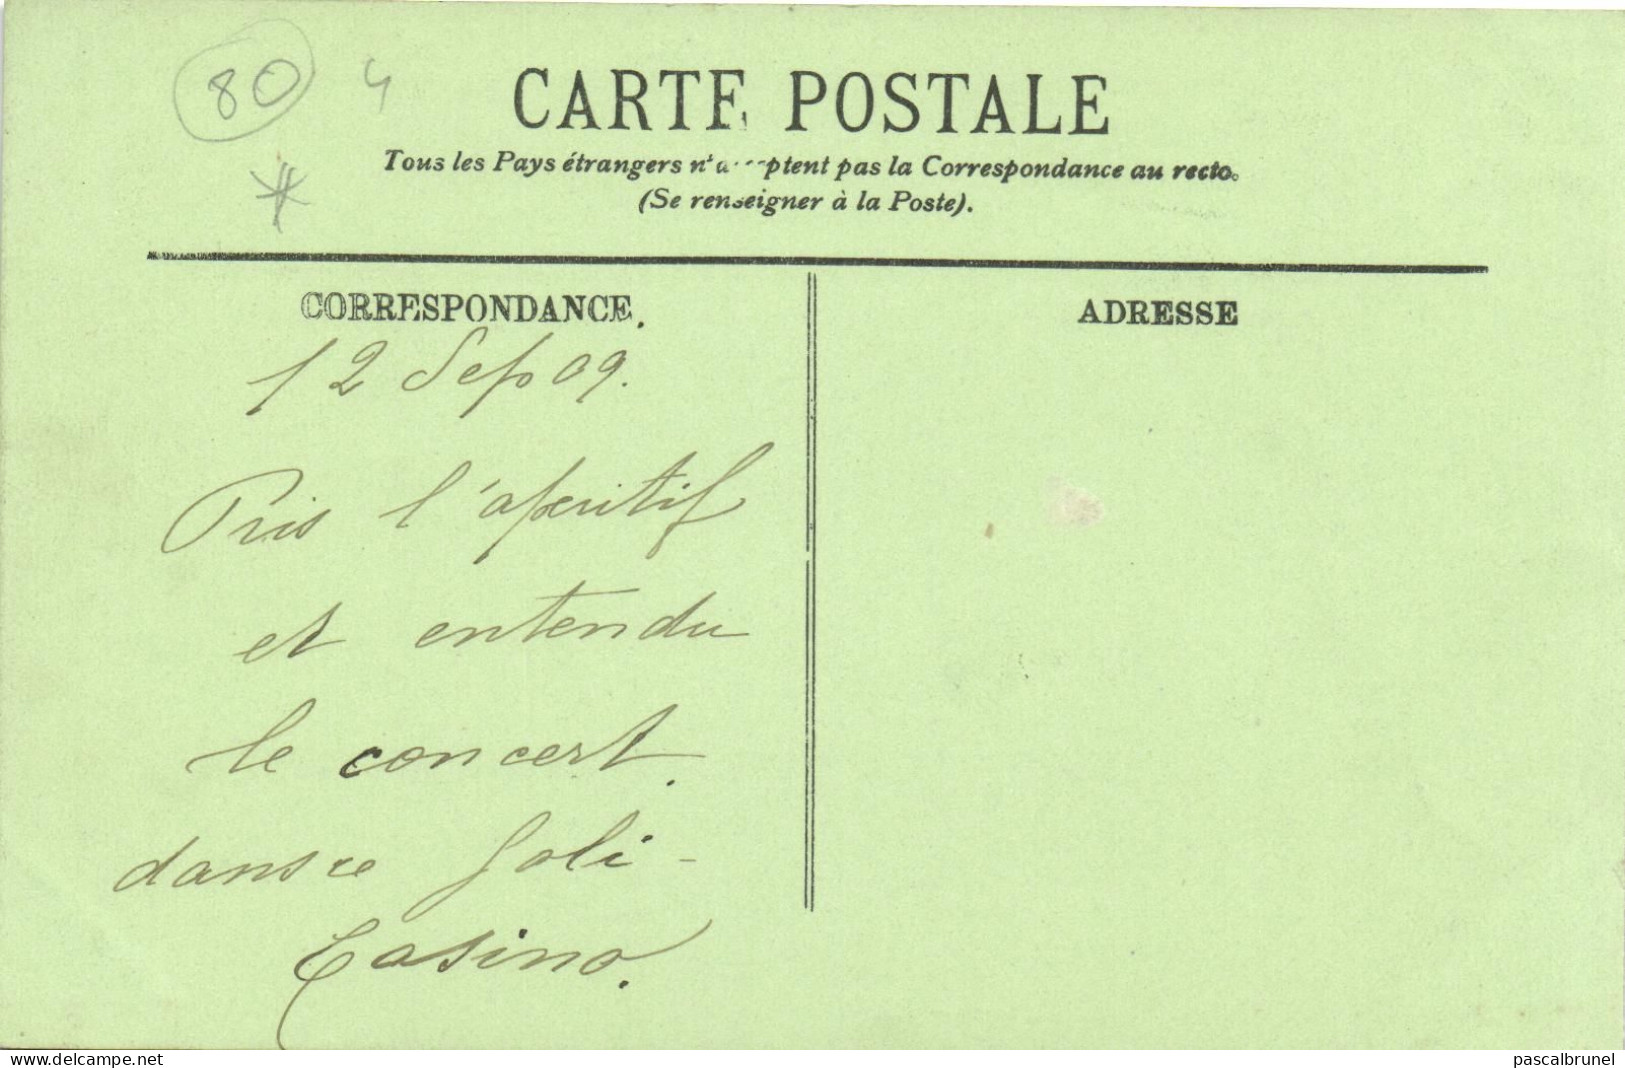 80 4
CARTE POSTALE
Tous les Pays étrangers n'acceptent pas la Correspondance au recto.
(Se renseigner à la Poste).
CORRESPONDANCE.
ADRESSE
12 Sep 09.
Pris l'aperitif
et entendu
le concert.
dans ce Joli -
Casino.
www.delcampe.net
pascalbrunel